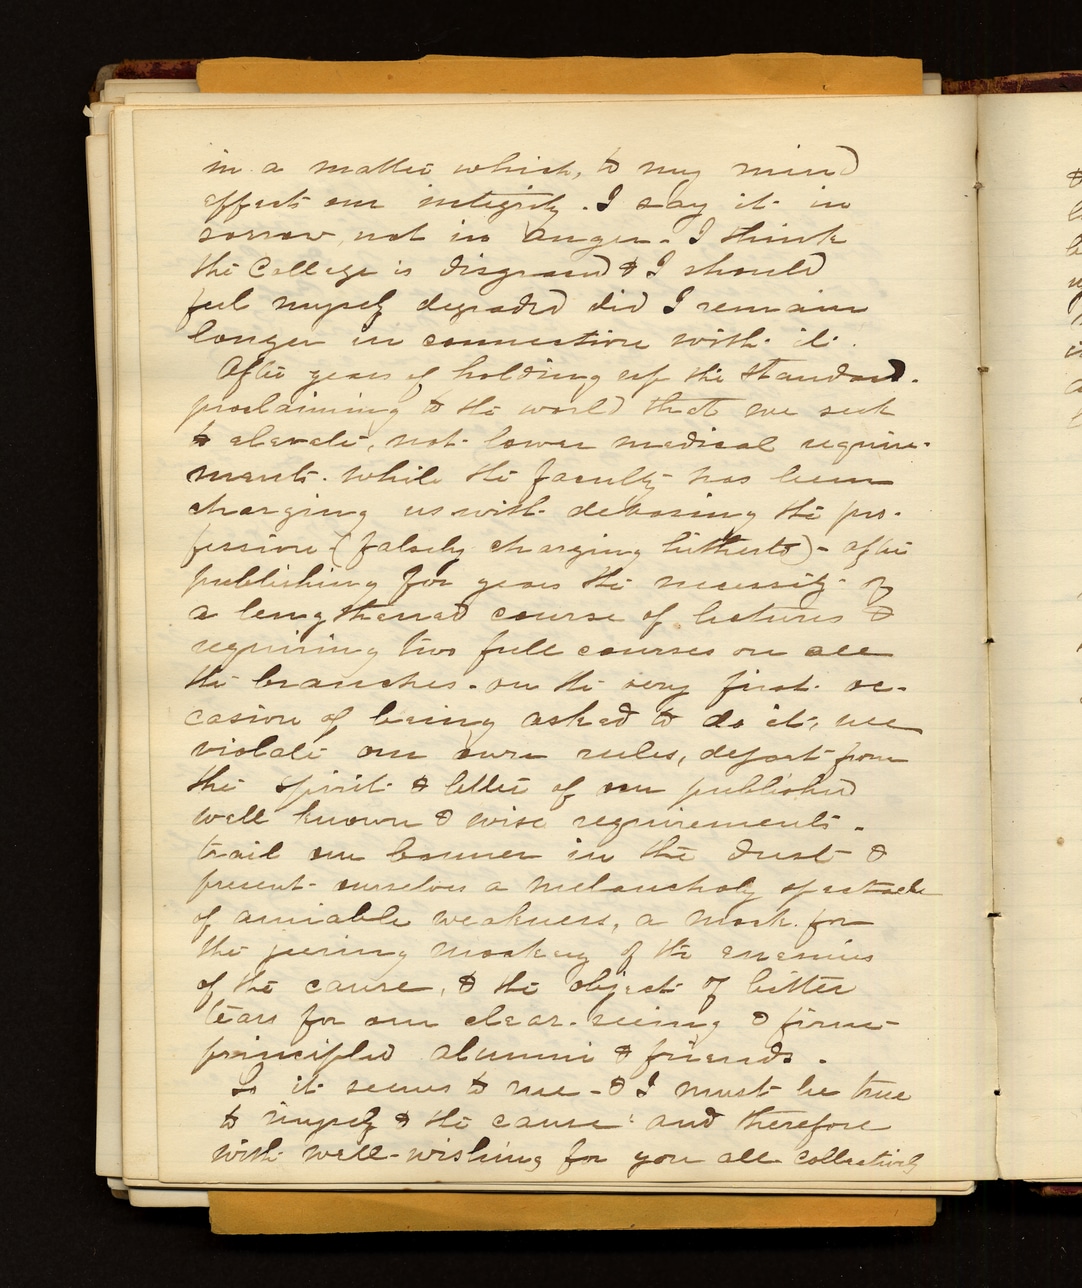 in a matter which, to my mind
effects our integrity. I say it in
sorrow, not in anger. I think
the College is disgraced & I should
feel myself degraded did I remain
longer in connection with it.
After years of holding up the standard.
proclaiming to the world that we seek
to elevate, not lower medical require-
ments. while the faculty has been
charging us with debasing the pro-
fession (falsely charging hitherto) - after
publishing for years the necessity of
a lengthened course of lectures &
requiring two full courses on all
the branches. on the very first oc-
casion of being asked to do it, we
violate our own rules, depart from
the spirit & letter of our published
well known & wise requirements.
trail our banner in the dust &
present ourselves a melancholy spectacle
of amiable weakness, a mark for
the jeering mockery of the enemies
of the cause, & the object of bitter
tears for our clear-seeing & firm-
principled alumni & friends.
So it seems to me - & I must be true
to myself & the cause: and therefore
with well-wishing for you all collectively